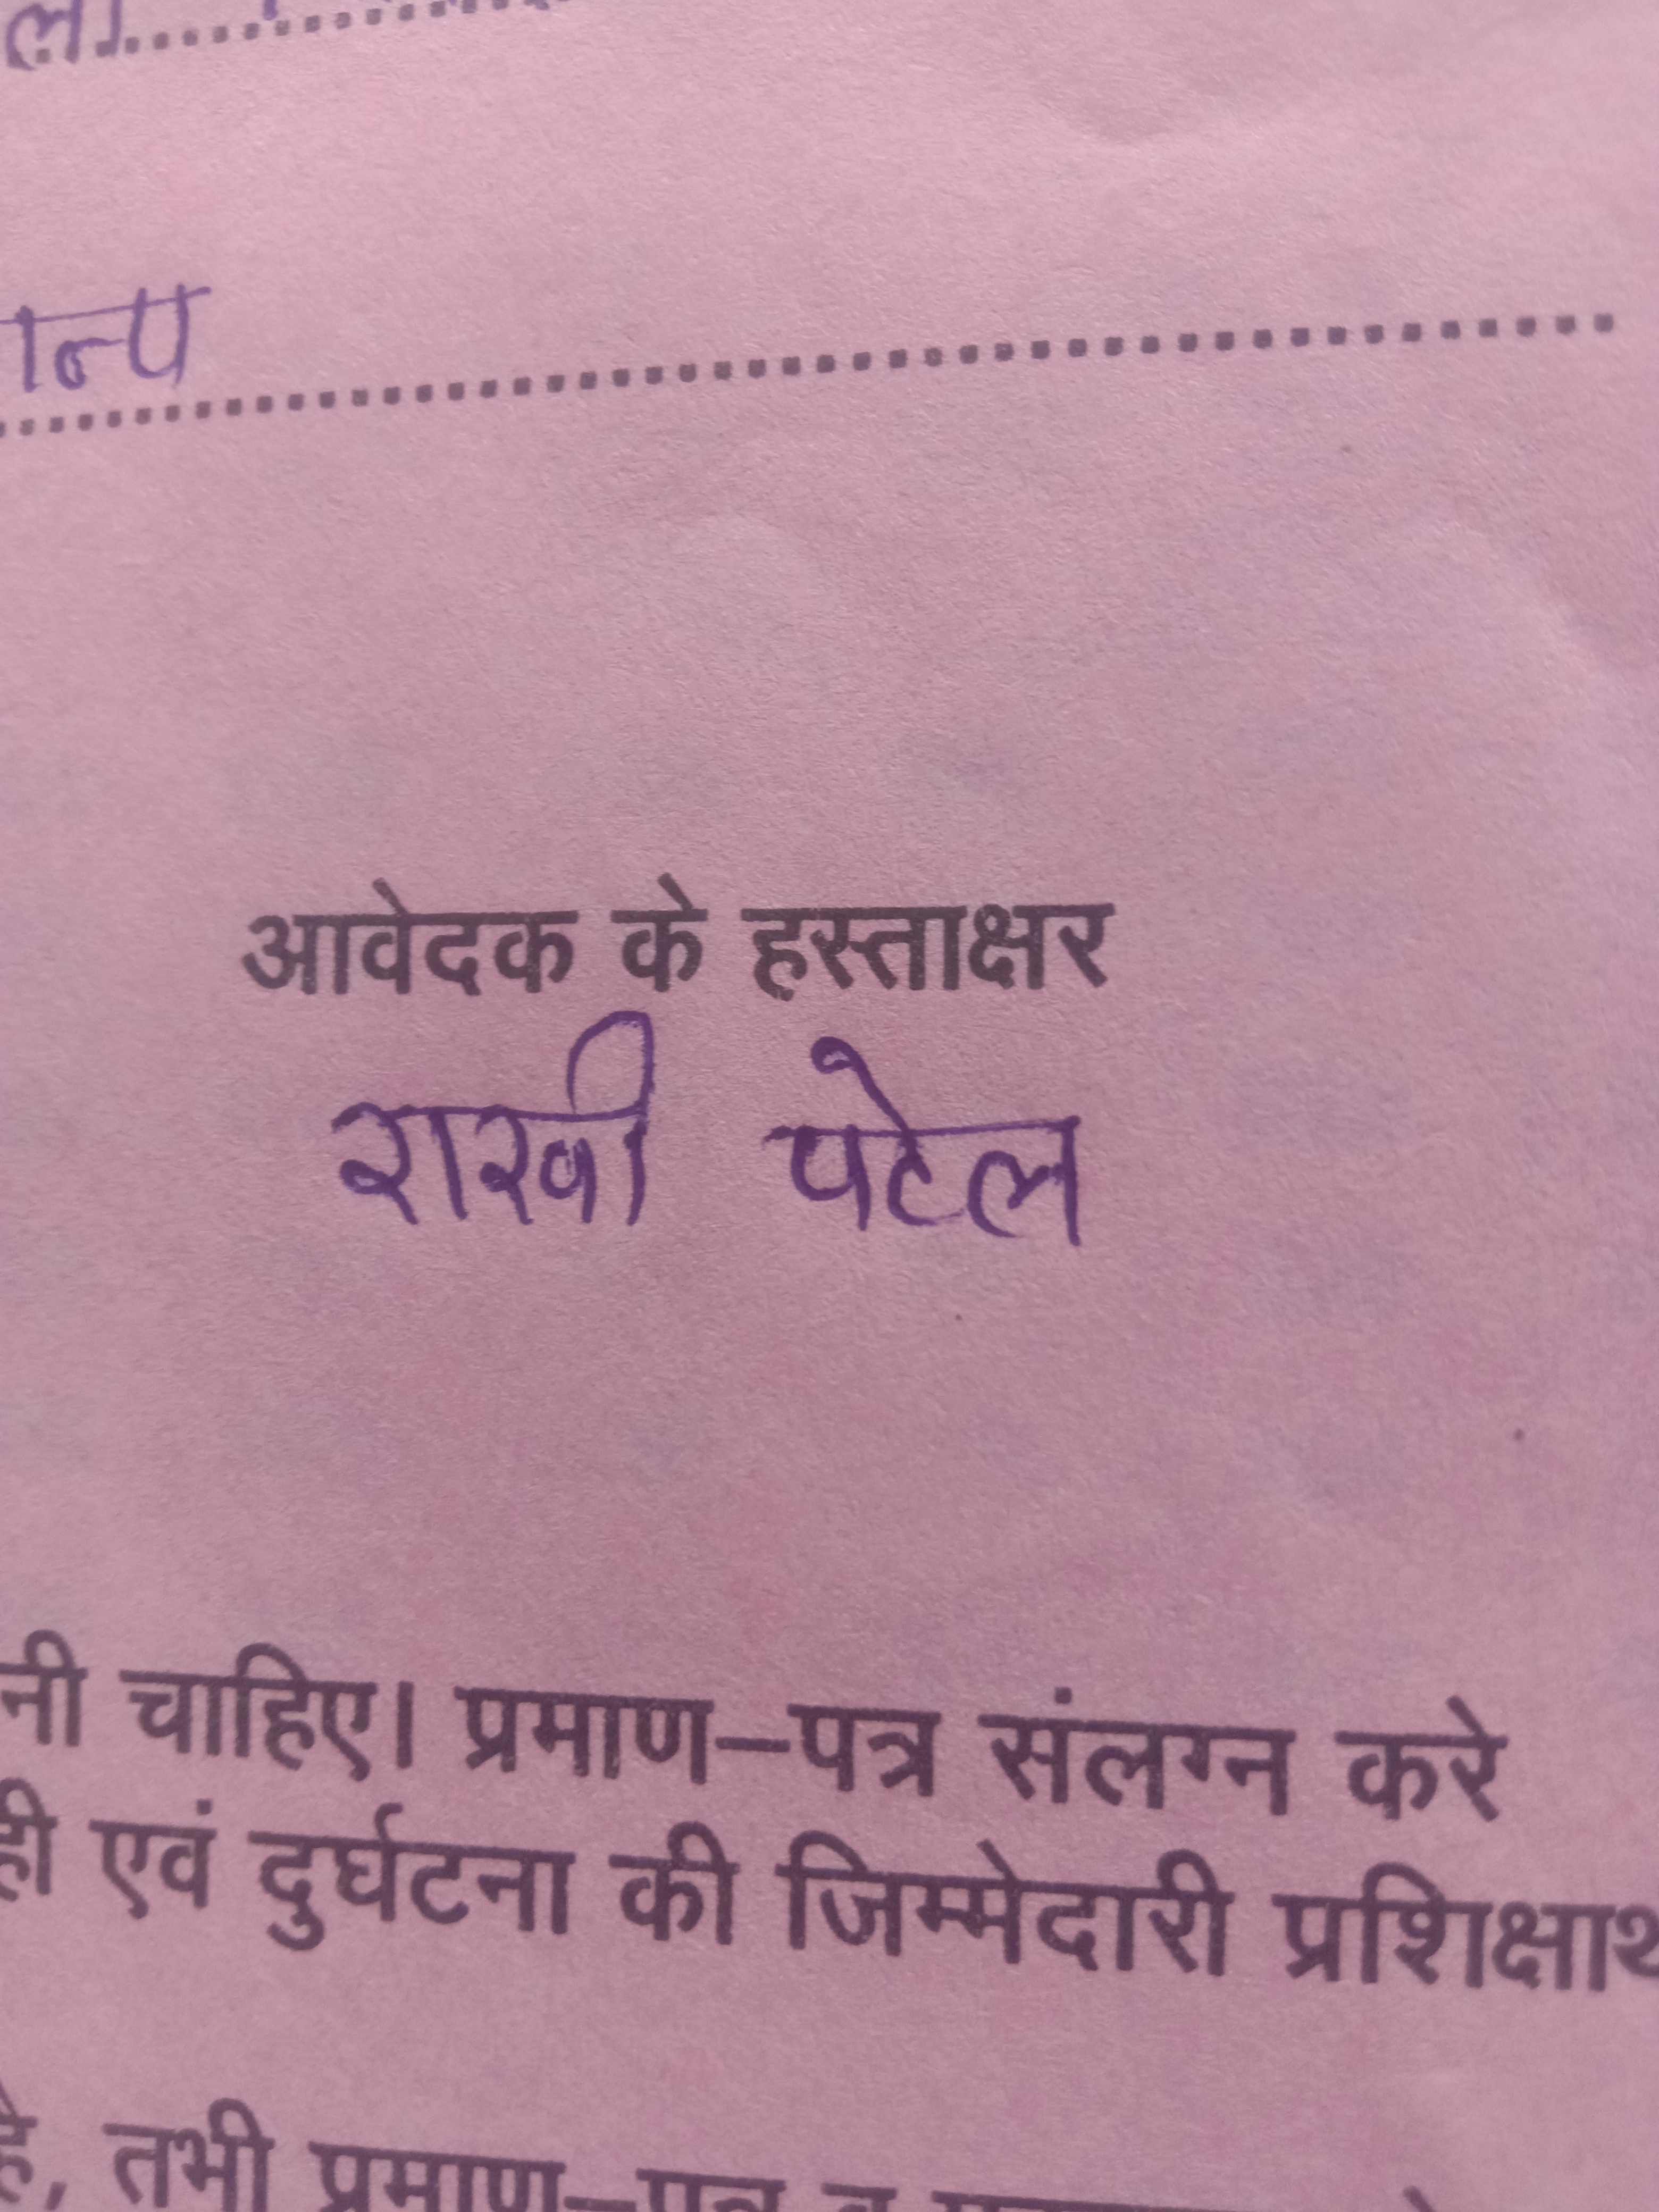 आवेदक के हस्ताक्षर
राखी पटेल
नी चाहिए। प्रमाण–पत्र संलग्न करे
ही एवं दुर्घटना की जिम्मेदारी
है, तभी प्रमाण–पत्र व